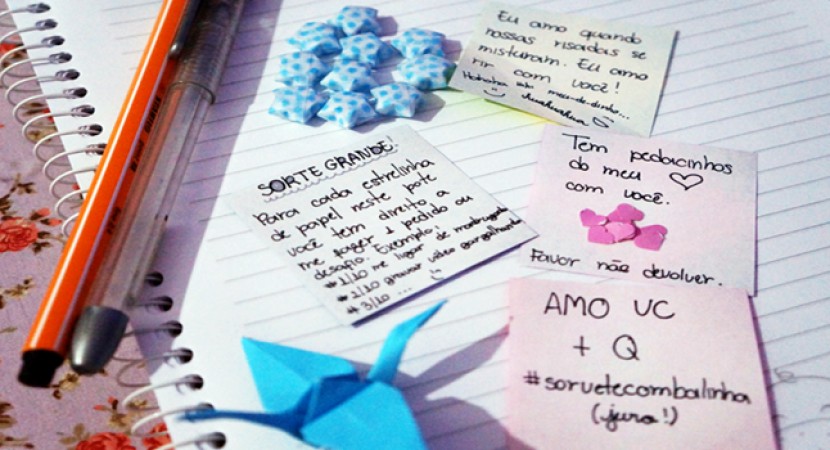 Eu amo quando
nossas risadas se
misturam. Eu amo
rir com você!
SORTE GRANDE!
Para cada estrelinha
de papel neste pote
você tem direito a
me fazer 1 pedido ou
desafio. Exemplo:
#1/10 me ligar de madrugada
#2/10 gravar vídeo gargalhando
#3/10 ...
Tem pedacinhos
do meu ♡
com você.
Favor não devolver.
AMO VC
+ Q
#sorvetecombalinha
(juro!)